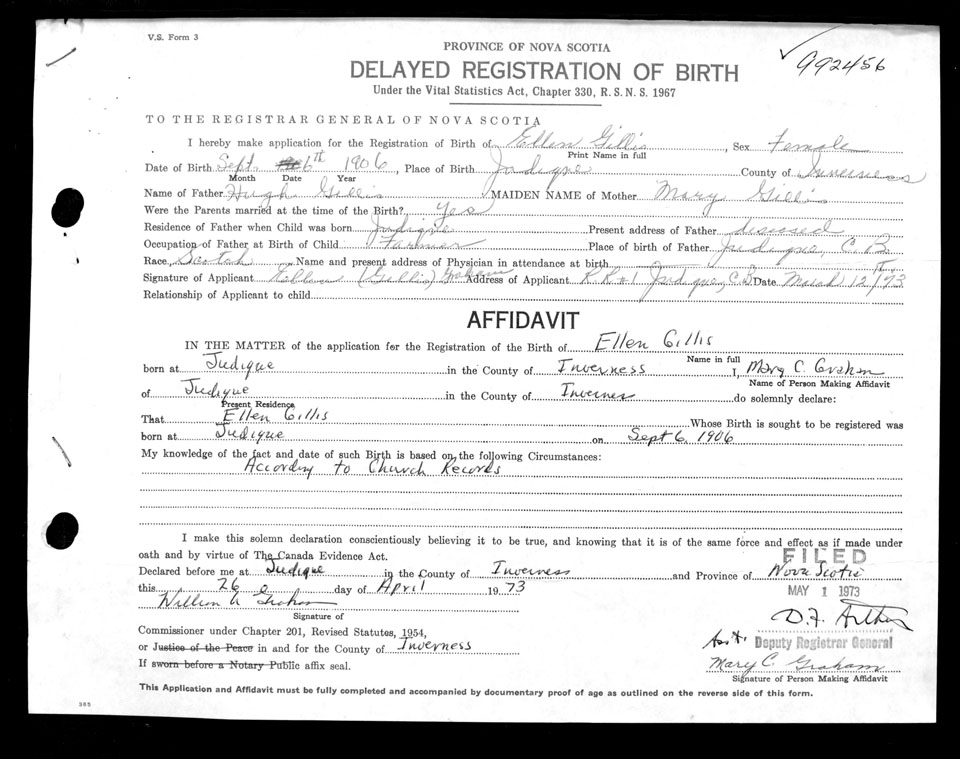 V.S. Form 3
PROVINCE OF NOVA SCOTIA
✓ 992456
DELAYED REGISTRATION OF BIRTH
Under the Vital Statistics Act, Chapter 330, R. S. N. S. 1967
TO THE REGISTRAR GENERAL OF NOVA SCOTIA
I hereby make application for the Registration of Birth of Ellen Gillis, Sex Female
Print Name in full
Date of Birth Sept 6th 1906, Place of Birth Judique County of Inverness
Month Date Year
Name of Father Hugh Gillis MAIDEN NAME of Mother Mary Gillis
Were the Parents married at the time of the Birth? Yes
Residence of Father when Child was born Judique Present address of Father deceased
Occupation of Father at Birth of Child Farmer Place of birth of Father Judique, C.B.
Race Scotch Name and present address of Physician in attendance at birth
Signature of Applicant Ellen (Gillis) Graham Address of Applicant R R #1 Judique, C.B Date March 12th/73
Relationship of Applicant to child
AFFIDAVIT
IN THE MATTER of the application for the Registration of the Birth of Ellen Gillis
Name in full
born at Judique in the County of Inverness I, Mary C. Graham
Name of Person Making Affidavit
of Judique in the County of Inverness do solemnly declare:
Present Residence
That Ellen Gillis Whose Birth is sought to be registered was
born at Judique on Sept 6, 1906
My knowledge of the fact and date of such Birth is based on the following Circumstances:
According to Church Records
I make this solemn declaration conscientiously believing it to be true, and knowing that it is of the same force and effect as if made under
oath and by virtue of The Canada Evidence Act.
FILED
Declared before me at Judique in the County of Inverness and Province of Nova Scotia
this 26 day of April 1973
MAY 1 1973
William A Graham
Signature of
Commissioner under Chapter 201, Revised Statutes, 1954,
or Justice of the Peace in and for the County of Inverness
Ass't. Deputy Registrar General
If sworn before a Notary Public affix seal.
Mary C. Graham
Signature of Person Making Affidavit
This Application and Affidavit must be fully completed and accompanied by documentary proof of age as outlined on the reverse side of this form.
385